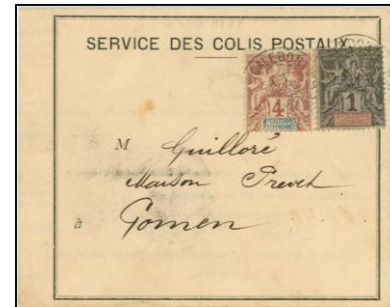 SERVICE DES COLIS POSTAUX
4 1
M Guilloré
Maison Prevet
à Gomen